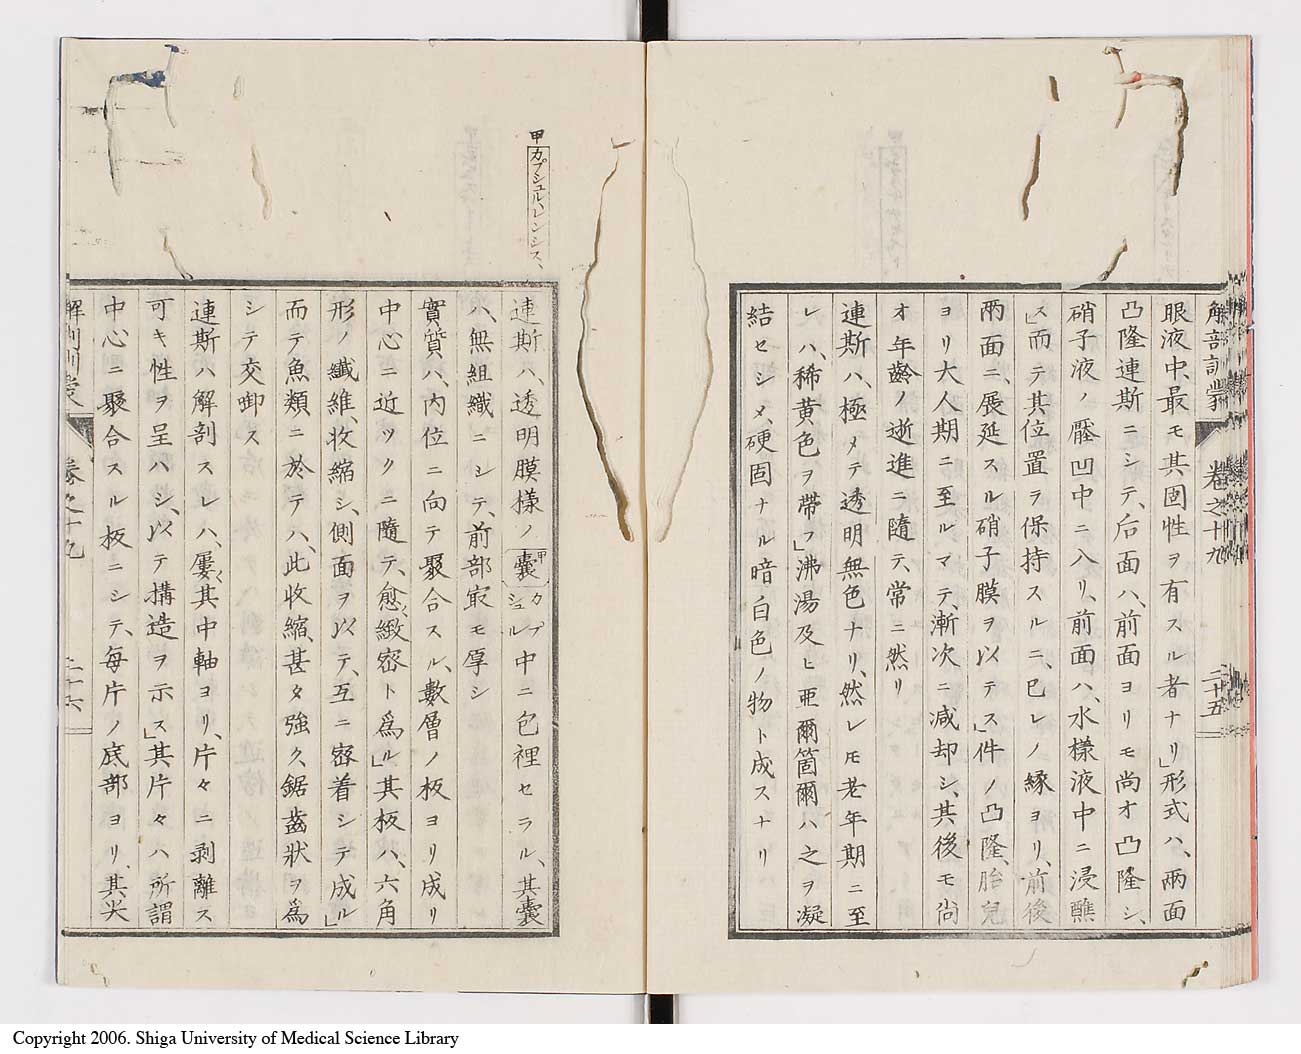 解剖訓蒙
卷之十九
二十五
眼液中、最モ其固性ヲ有スル者ナリ」形式ハ、兩面
凸隆連斯ニシテ、后面ハ、前面ヨリモ尚オ凸隆シ、
硝子液ノ壓凹中ニ入リ、前面ハ、水樣液中ニ浸醮
ス」而テ其位置ヲ保持スルニ、已レノ緣ヨリ、前後
兩面ニ、展延スル硝子膜ヲ以テス」件ノ凸隆、胎兒
ヨリ大人期ニ至ルマテ、漸次ニ减却シ、其後モ尙
オ年齡ノ逝進ニ隨テ、常ニ然リ
連斯ハ、極メテ透明無色ナリ、然レ𪜈老年期ニ至
レハ、稀黄色ヲ帶フ」沸湯及ヒ亜爾箇爾ハ之ヲ凝
結セシメ、硬固ナル暗白色ノ物ト成スナリ
甲カプシュル、レンシス、
連斯ハ、透明膜樣ノ甲囊カプシュル中ニ包裡セラル、其囊
ハ、無組織ニシテ、前部㝡モ厚シ
實質ハ、内位ニ向テ聚合スル、數層ノ板ヨリ成リ
中心ニ近ツクニ隨テ、愈〻緻密ト爲ル」其板ハ、六角
形ノ纖維、收縮シ、側面ヲ以テ、互ニ密着シテ成ル」
而テ魚類ニ於テハ、此收縮、甚タ強ク、鋸齒狀ヲ爲
シテ交啣ス
連斯ハ解剖スレハ、屢〻其中軸ヨリ、片々ニ剥離ス
可キ性ヲ呈ハシ、以テ構造ヲ示ス」其片々ハ所謂
中心ニ聚合スル板ニシテ、每片ノ底部ヨリ、其尖
解剖訓蒙
卷之十九
二十六
Copyright 2006. Shiga University of Medical Science Library